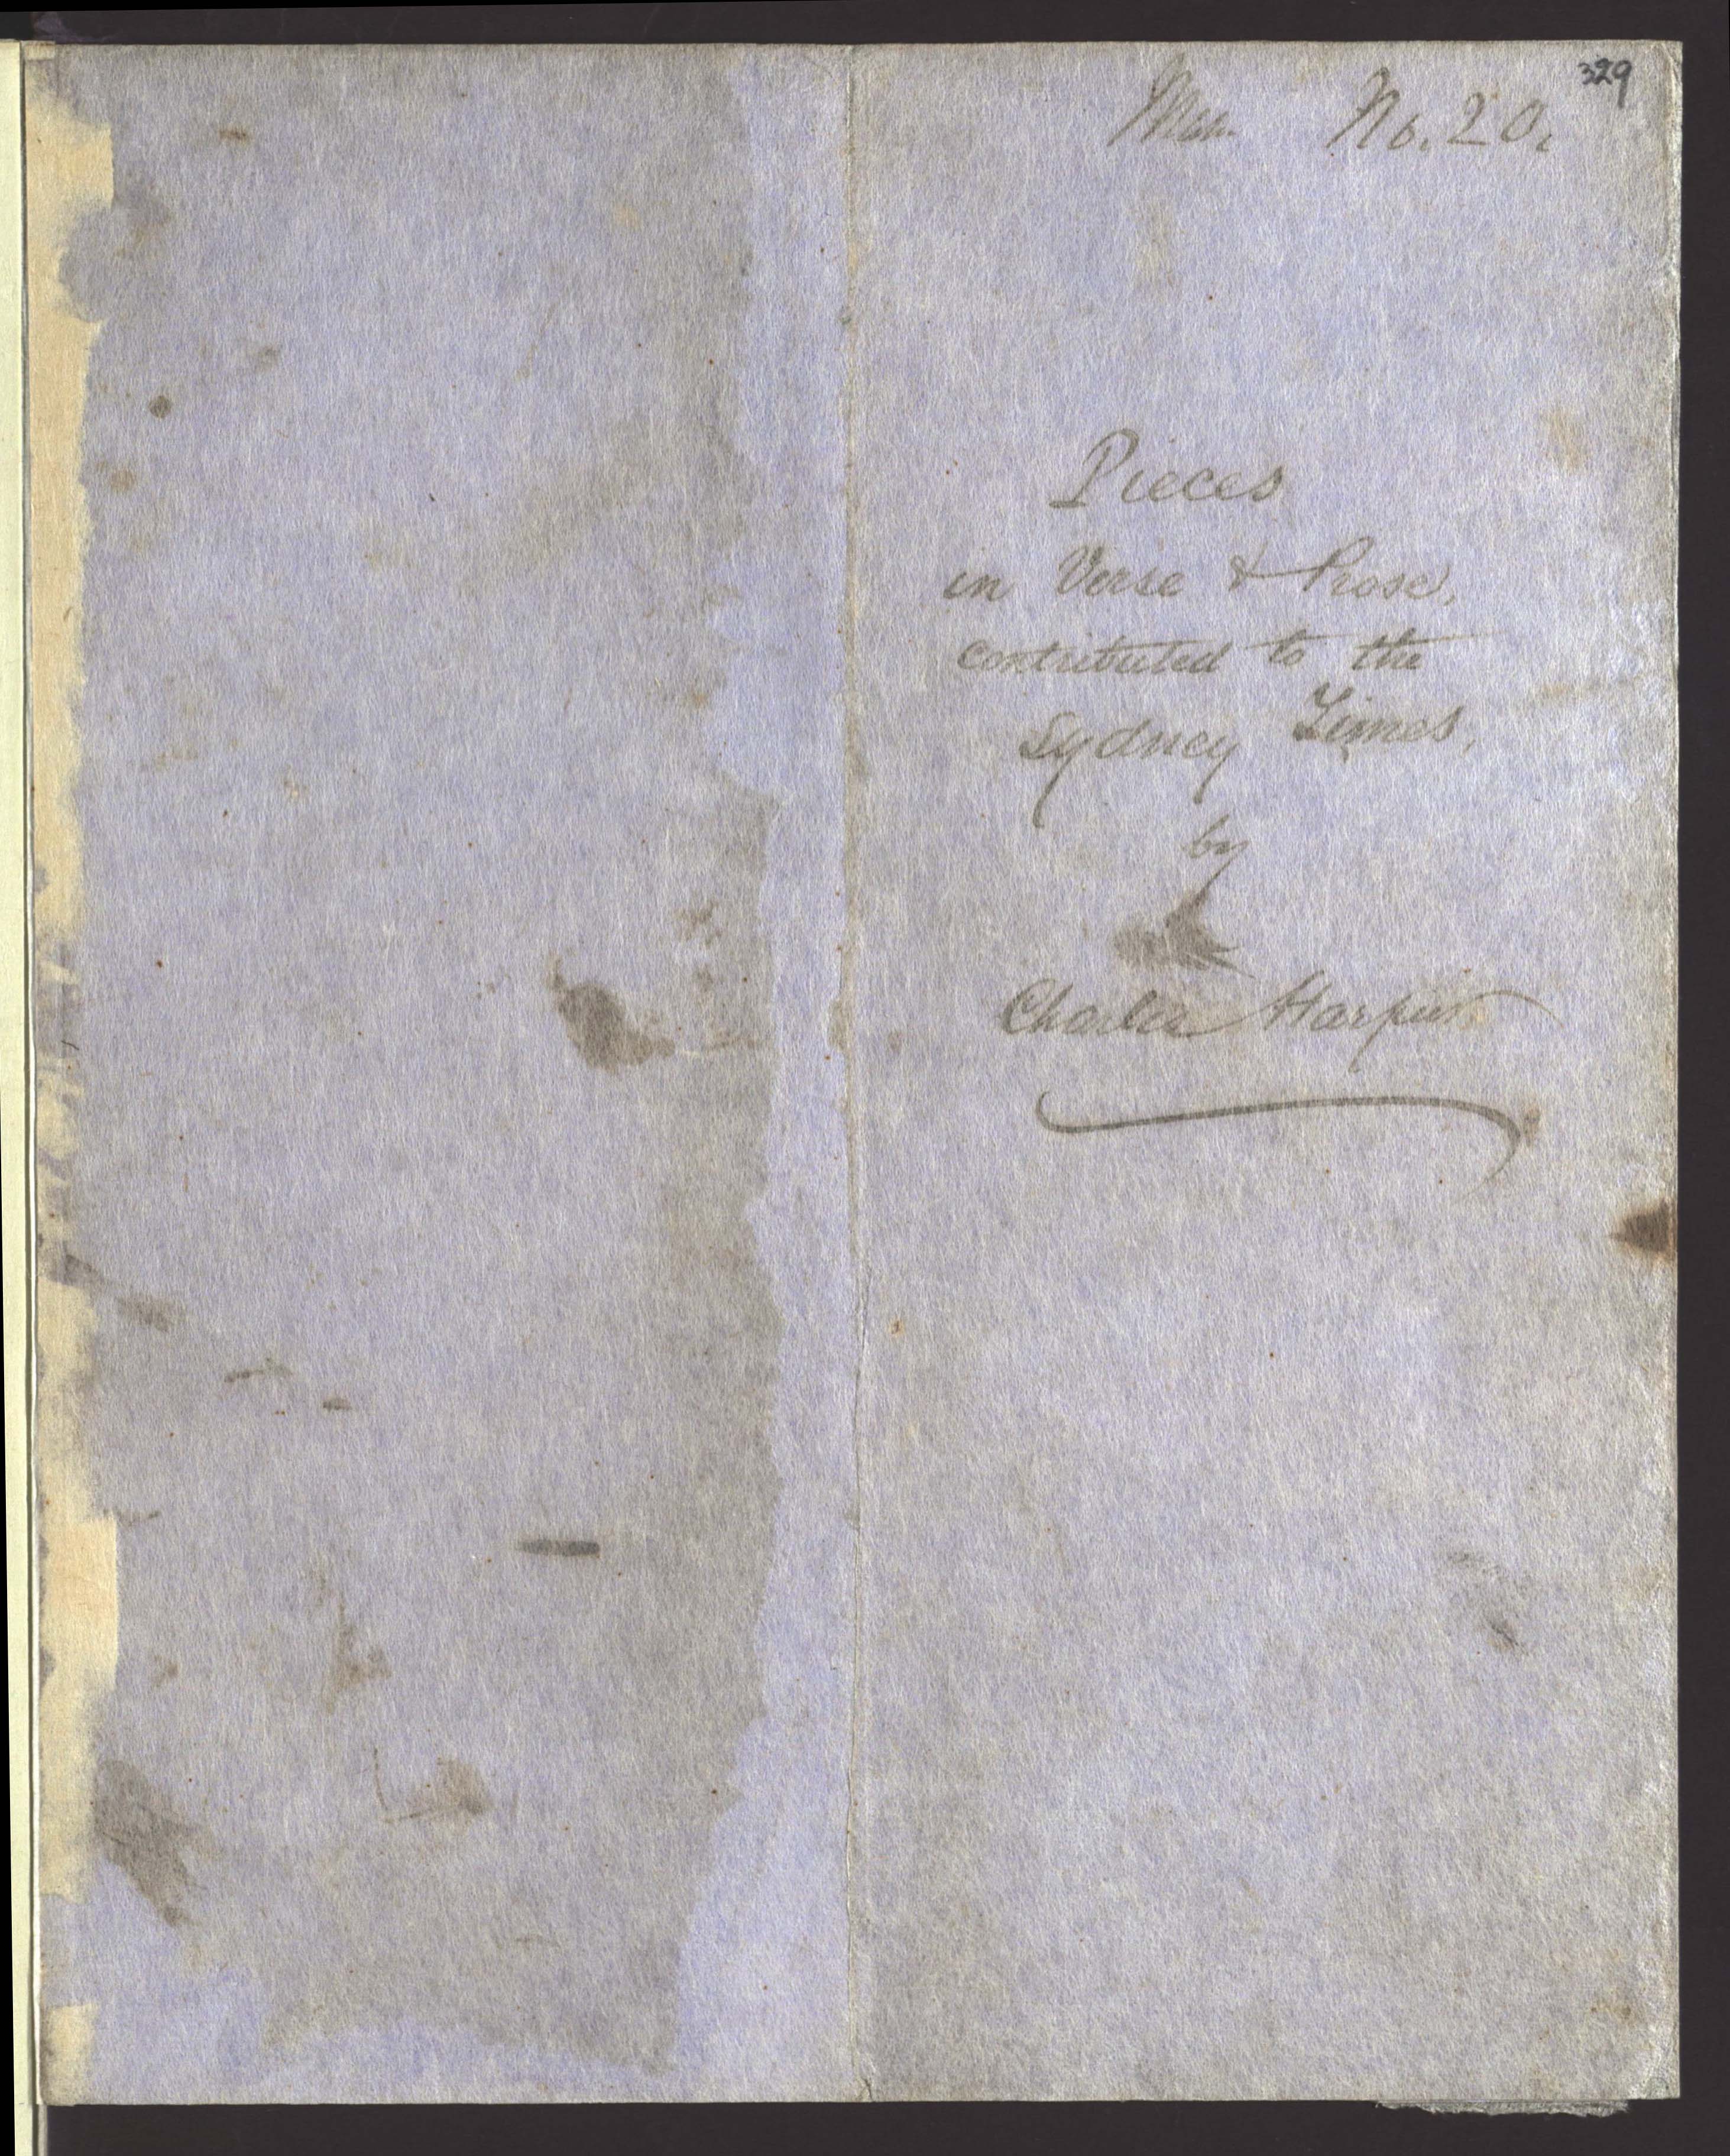 329
No. 20.
Pieces
in Verse & Prose,
contributed to the
Sydney Times,
by
Charles Harpur